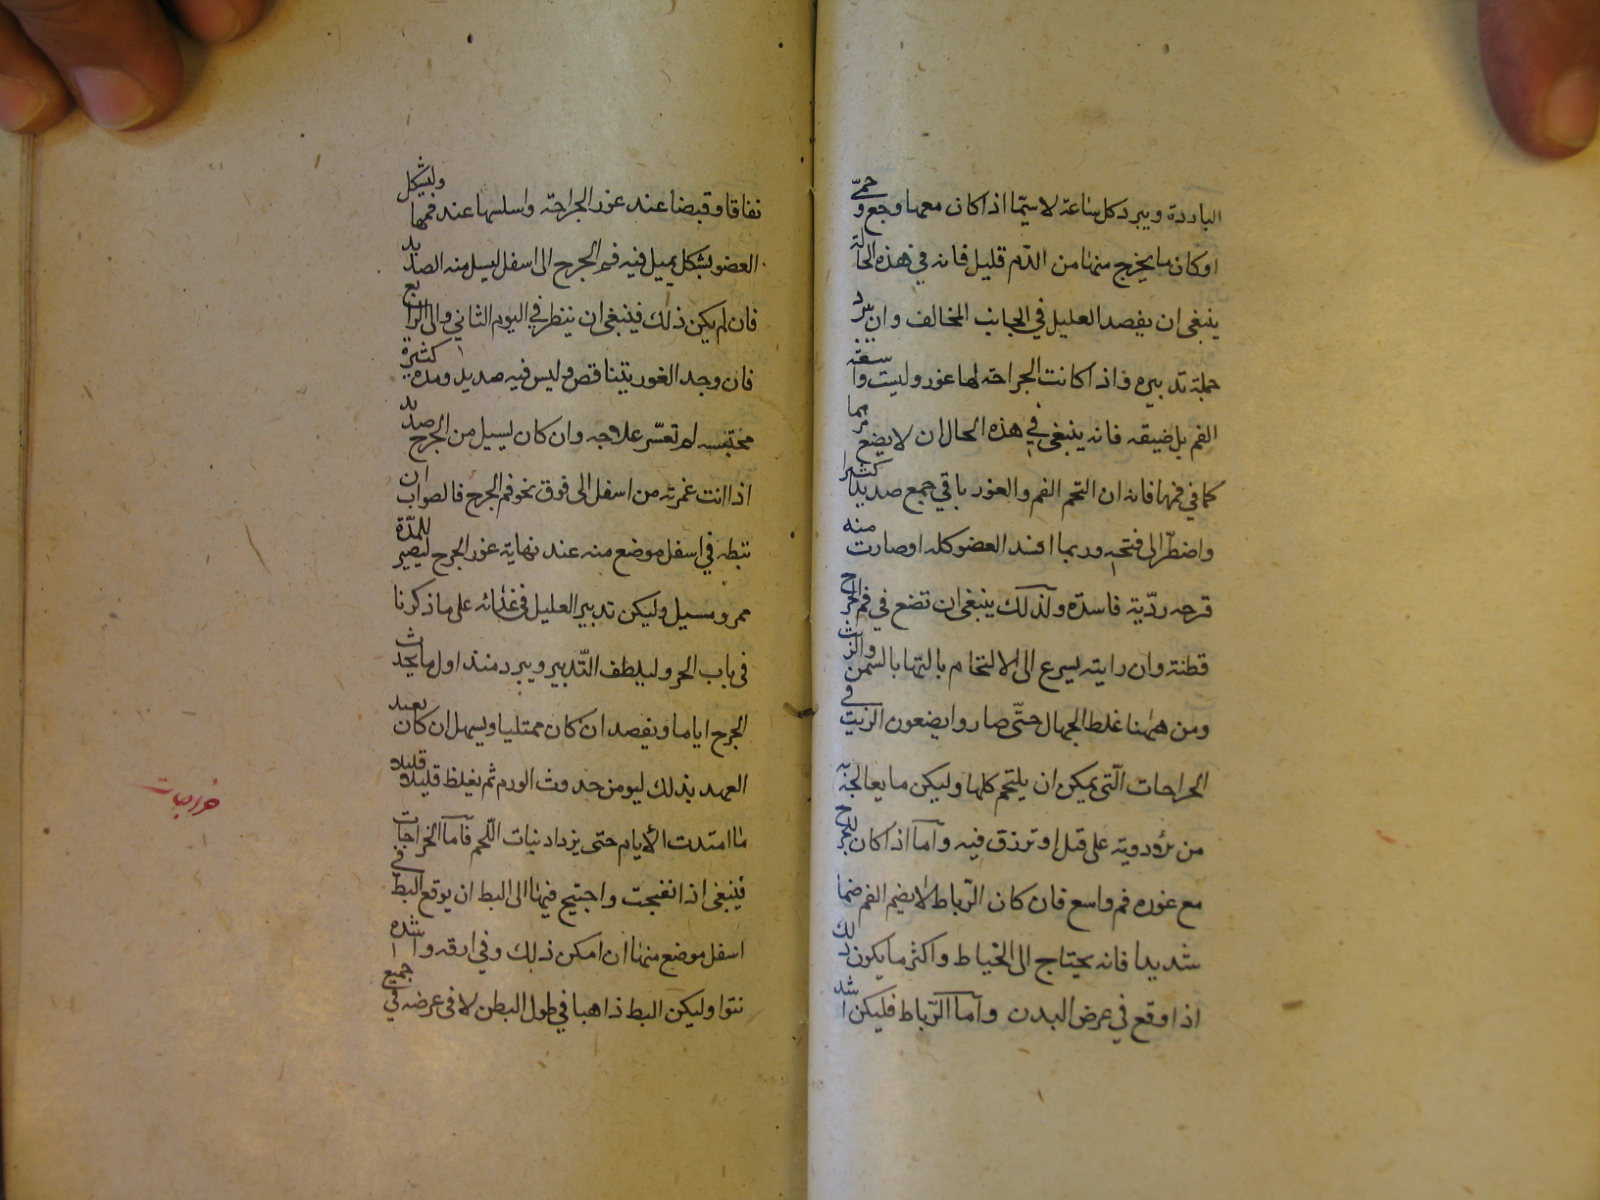 الباردة ويبرد كل ساعة لا سيما اذا كان معها وجع وحمى
او كان ما يخرج منها من الدم قليل فانه في هذه الحالة
ينبغى ان يفصد العليل في الجانب المخالف وان يبرد
جملة تدبيره واذا كانت الجراحة لها غور وليست واسعة
الفم بل ضيقه فانه ينبغى في هذه الحال ان لا يضع
كما في فمها فانه ان التحم الفم والغور باقي جمع صديدا كثيرا
واضطر الى فتحه وربما افسد العضو كله او صارت منه
قرحه رديّة فاسدة ولذلك ينبغى ان تضع في فم الجرح
قطنة وان رايته يسرع الى الالتحام بالتها بالسمن والزيت
ومن ههنا غلط الجهال حتّى صاروا يضعون الزيت في
الجراحات الّتى يمكن ان يلتحم كلها وليكن ما يعالجنه به
من ادوية على فتل او تزرق فيه وامّا اذا كان للجرح
مع غوره فم واسع فان كان الرباط لا يضم الفم ضما
شديدا فانه يحتاج الى الخياط واكثر ما يكون ذلك
اذا وقع في عرض البدن وامّا الرّباط فليكن اشد
نفاقا وقبضا عند غور الجراحة واسلسها عند فمها وليشكل
العضو بشكل يميل فيه فم الجرح الى اسفل ليسل منه الصديد
فان لم يكن ذلك فينبغى ان ينظر في اليوم الثاني والى الرابع
فان وجد الغور يتناقص وليس فيه صديد ومده كثيرة
محتبسه لم تعسّر علاجه وان كان يسيل من الجرح صديد
اذا انت غمزته من اسفل الى فوق نحو فم الجرح فالصواب ان
تبطه في اسفل موضع منه عند نهاية غور الجرح ليصير للمدّة
ممر ومسيل وليكن تدبير العليل في غذائه على ما ذكرنا
فى باب الحر وليلطف التّدبير ويبرد منذ اول ما يحدث
الجرح اياما ويفصد ان كان ممتليا ويسهل ان كان بعيد
العهد بذلك ليومن حدوث الورم ثم يغلظ قليلا قليلا
ما امتدت الأيام حتى يزداد نبات اللّحم فامّا الخراجات
فينبغى اذا انفجت واحتيج فيها الى البط ان يوقع البط في
اسفل موضع منها ان امكن ذلك وفي ارقه واشده
نتوا وليكن البط ذاهبا في طول البطن لا فى عرضه في جميع
خراجات